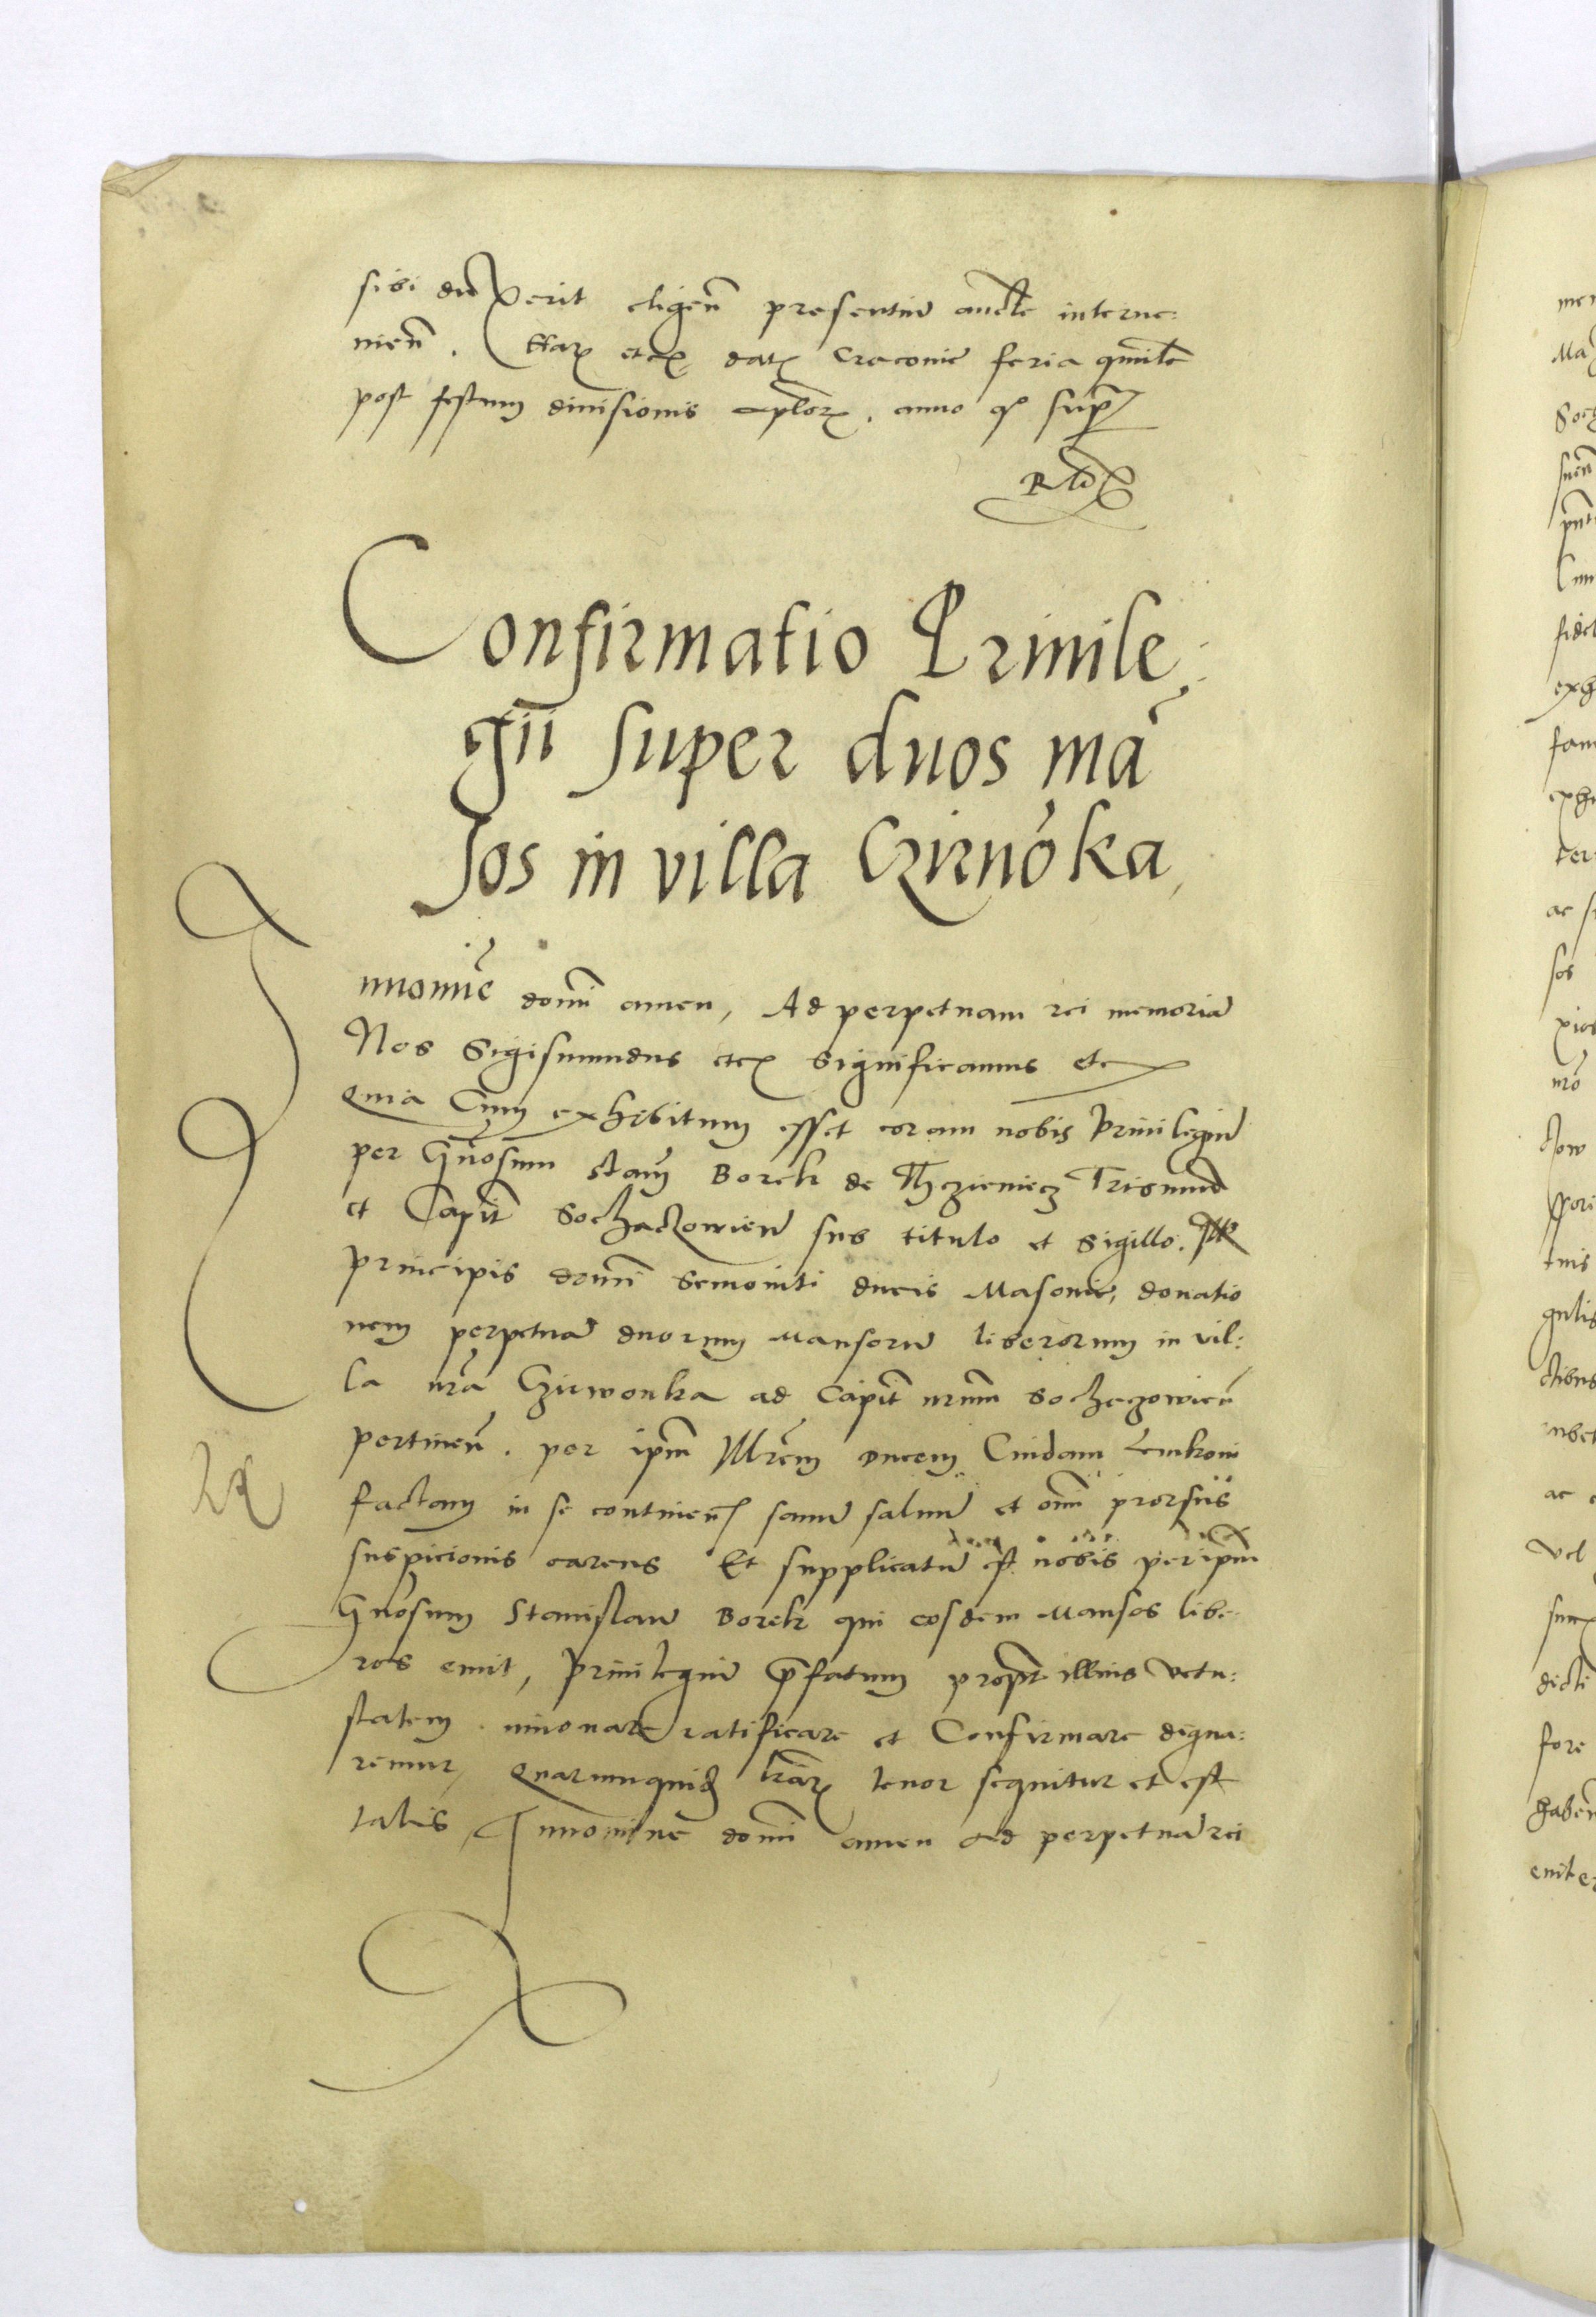 sibi duxerit eligen̄ presentiū auctē interue:
nien̄. Harꝝ etcꝝ datꝝ Cracouie feria
post festum diuisionis apl̄orꝝ. anno qo supra
Confirmatio Priuile:
gii super duos mā
sos in villa Czirwōka,
Innomīe domī amen, Ad perpetuam rei memoriā
Nos Sigismundus etcꝝ Significamus etc
quia Cum exhibitum esset coram nobis Priuilegiū
per Gn̄osum stan̄ Borek de Thczieniecz Tribunū
et Capit̄ Sochaczowien̄ sub titulo et sigillo.
principis domī Semouiti ducis Masouie, donatio
nem perpetuā duorum Mansorū liberorum in vil:
la nr̄a Czirwonka ad Capit̄ nrum̄ Sochczowien̄
pertinen̄. per ip̄m Illr̄em ducem Cuidam Lemkoni
factam in se continen̄ sanū saluū et om̄i prorsus
suspicionis carens Et supplicatū est nobis per ip̄m
Gn̄osum Stanislaū Borek qui eosdem Mansos libe
ros emit, Priuilegiū p̄fatum propt̄ illius vetu:
statem. innouare ratificare et Confirmare digna:
remur, Quarumquidē lr̄arꝝ tenor sequitur et est
talis, Innomine domī amen Ad perpetuā rei